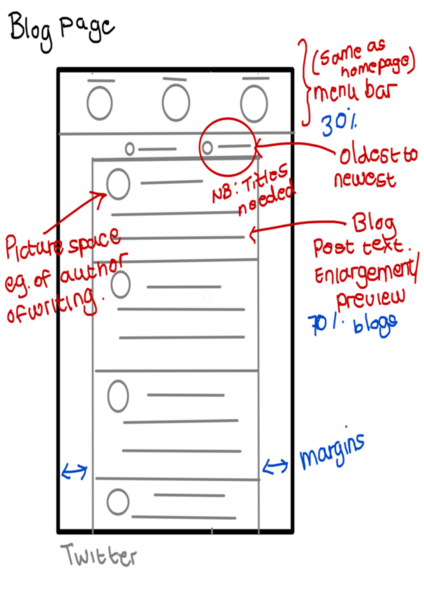 Blog Page
(same as
homepage)
menu bar
30%
Oldest to
newest
NB: Titles
needed
Picture space
eg. of author
of writing.
Blog
Post text.
Enlargement/
preview
70%. blogs
margins
Twitter